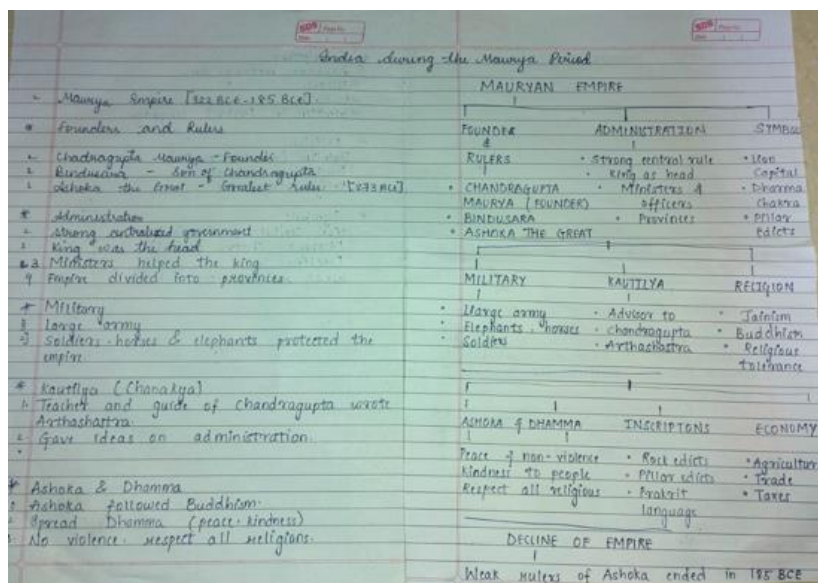 SDS
SDS
India during the Maurya Period
- Maurya Empire [322 BCE - 185 BCE]
* Founders and Rulers
Chadragupta Maurya - Founder
Bindusara - Son of Chandragupta
Ashoka the Great - Greatest Ruler
* Administration
Strong centralized government
King was the head
3 Ministers helped the king
4 Empire divided into provinces.
* Military
Large army
Soldiers. horses & elephants protected the
empire.
* Kautilya (Chanakya)
1. Teacher and guide of Chandragupta wrote
Arthashastra.
2. Gave ideas on administration.
* Ashoka & Dhamma
Ashoka followed Buddhism.
Spread Dhamma (peace. kindness)
No violence. respect all religions.
MAURYAN EMPIRE
FOUNDER
&
RULERS
• CHANDRAGUPTA
MAURYA (FOUNDER)
• BINDUSARA
• ASHOKA THE GREAT
ADMINISTRATION
• Strong central rule
• King as head
• Ministers &
officers
• Provinces
SYMBOL
• Lion
Capital
• Dharma
Chakra
• Pillar
edicts
MILITARY
• Large army
• Elephants. horses
• Soldiers
KAUTILYA
• Advisor to
• Chandragupta
• Arthashastra
RELIGION
• Jainism
• Buddhism
• Religious
tolerance
ASHOKA & DHAMMA
Peace & non-violence
Kindness to people
Respect all religious
INSCRIPTONS
• Rock edicts
• Pillar edicts
• Prakrit
language
ECONOMY
• Agricultur
• Trade
• Taxes
DECLINE OF EMPIRE
Weak rulers of Ashoka ended in 185 BCE